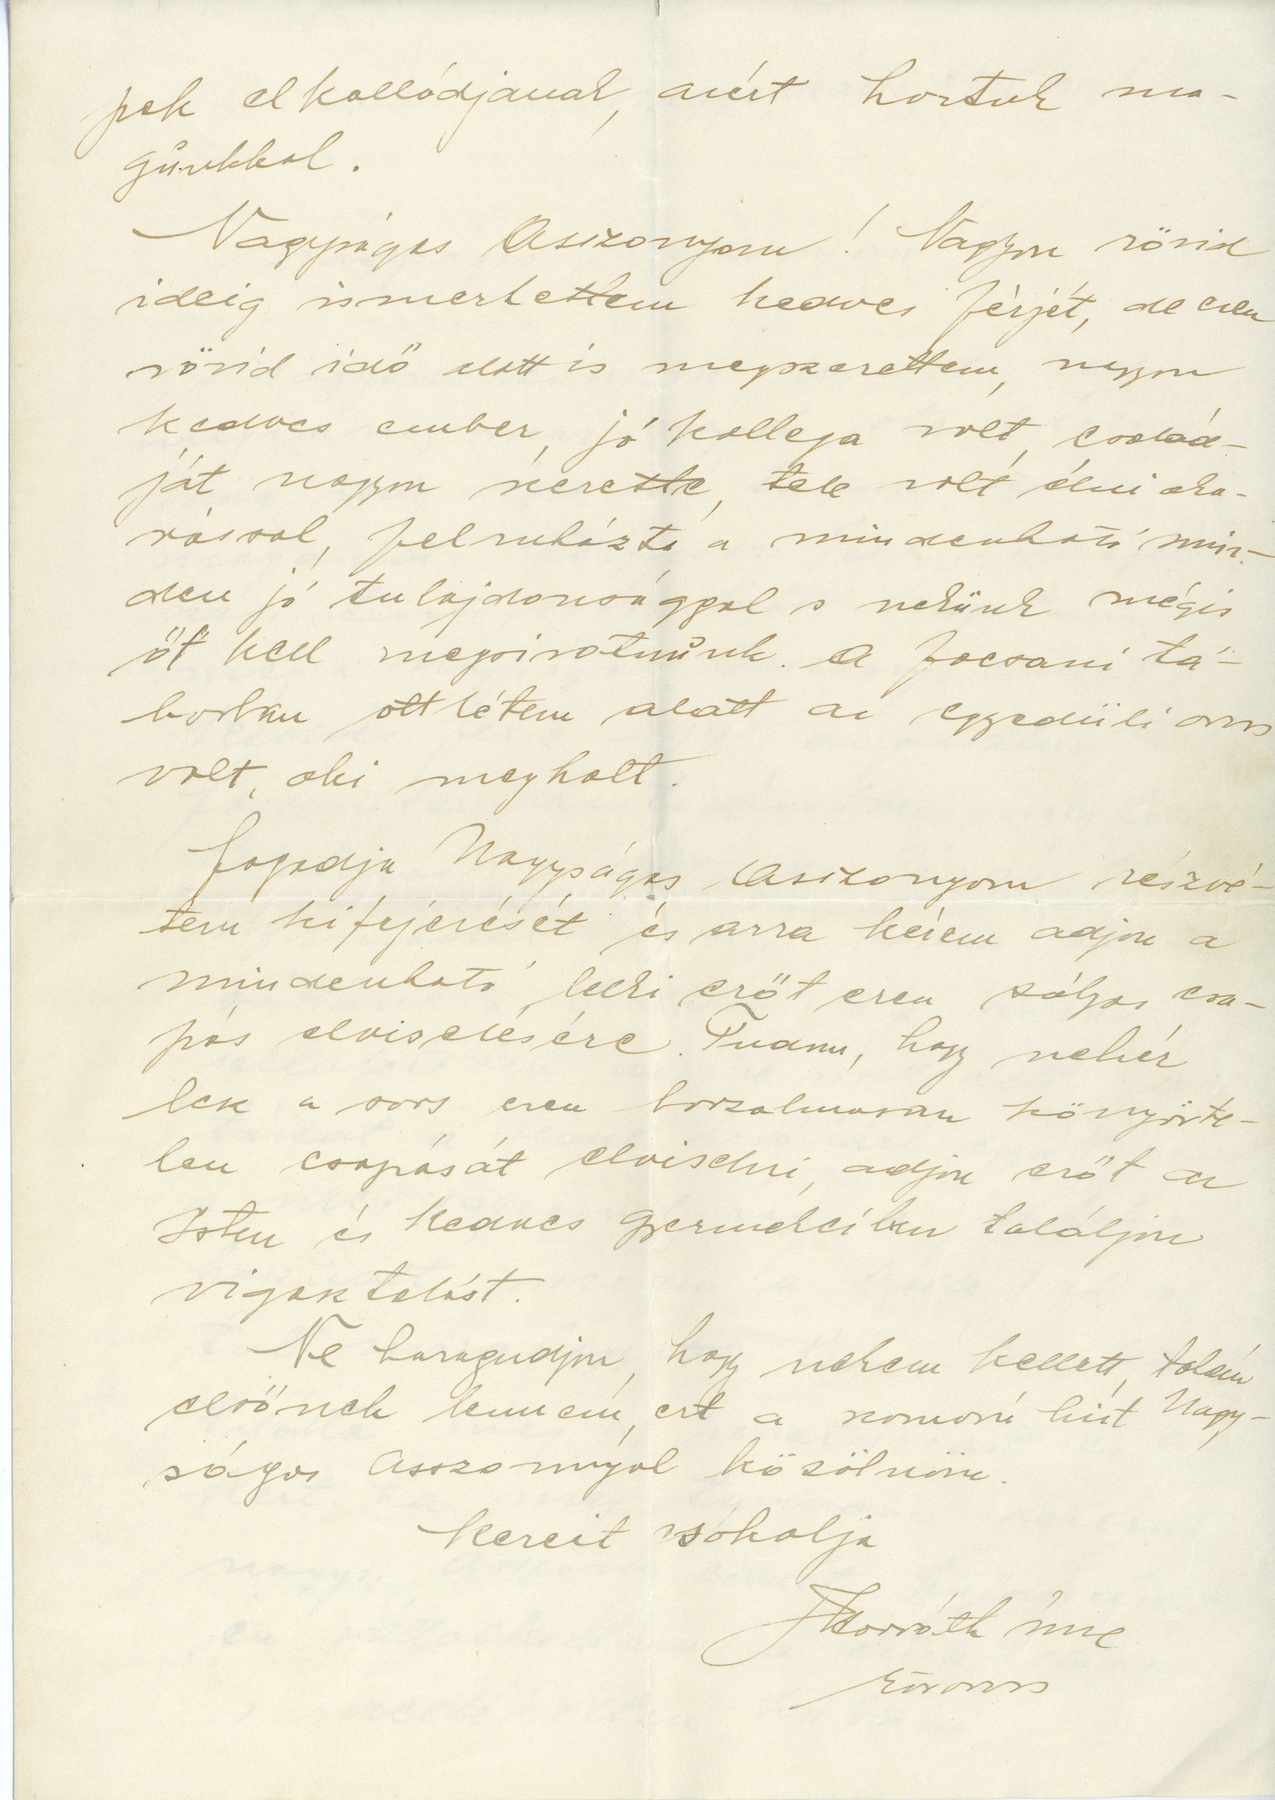 pek elkallódjanak, azért hoztuk ma-
gunkkal.
Nagyságos Asszonyom! Nagyon rövid
ideig ismerhettem kedves férjét, de ezen
rövid idő alatt is megszerettem, nagyon
kedves ember, jó kollega volt, család-
ját nagyon szerette, tele volt élni aka-
rással, felruházta a mindenható min-
den jó tulajdonsággal s nekünk mégis
őt kell megsiratnunk. A focsani tá-
borban ottlétem alatt az egyedüli orvos
volt, aki meghalt.
Fogadja Nagyságos Asszonyom részvé-
tem kifejezését és arra kérem adjon a
mindenható lelki erőt ezen súlyos csa-
pás elviselésére. Tudom, hogy nehéz
lesz a sors ezen borzalmasan könyörte-
len csapását elviselni, adjon erőt az
Isten és kedves gyermekeiben találjon
vigasztalást.
Ne haragudjon, hogy nekem kellett, talán
elsőnek lennem, ezt a szomorú hírt Nagy-
ságos Asszonnyal közölnöm.
Kezeit csókolja
Horváth Imre